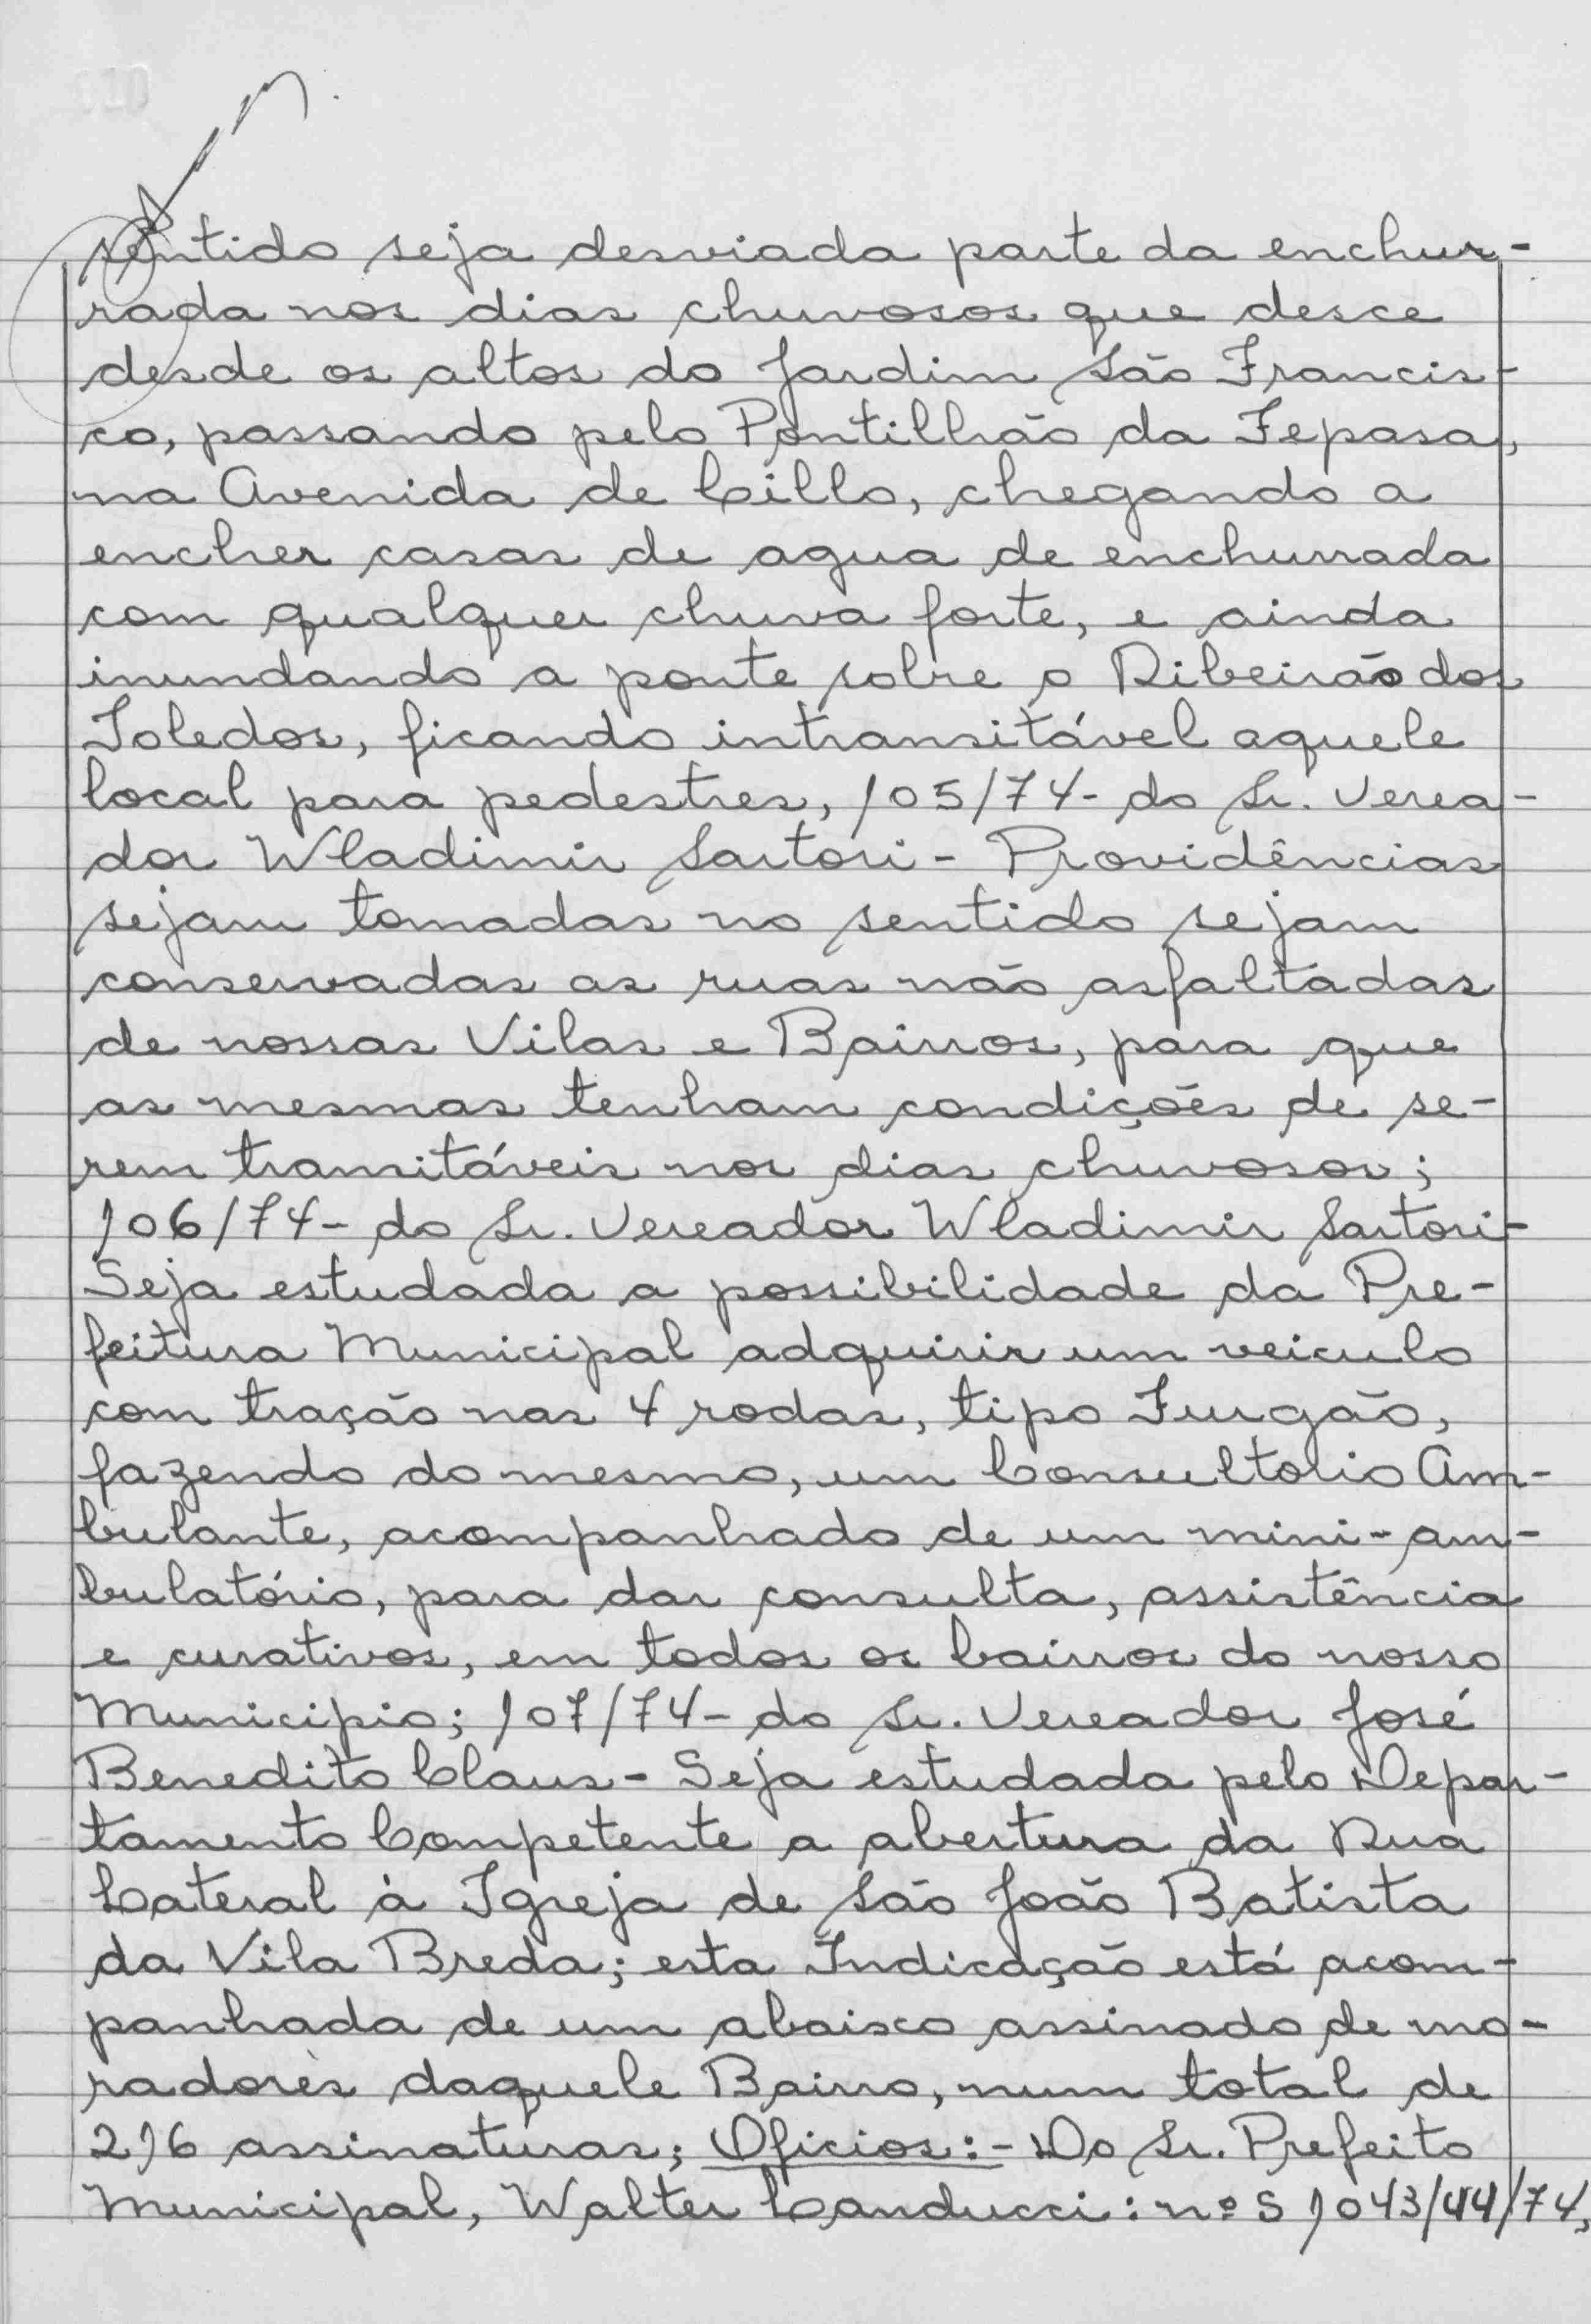 sentido seja desviada parte da enchur-
rada nos dias chuvosos que desce
desde os altos do Jardim São Francis-
co, passando pelo Pontilhão da Fepasa,
na Avenida de Cillo, chegando a
encher casas de agua de enchurrada
com qualquer chuva forte, e ainda
inundando a ponte sobre o Ribeirão dos
Toledos, ficando intransitável aquele
local para pedestres, 105/74- do Sr. Verea-
dor Wladimir Sartori - Providências
sejam tomadas no sentido sejam
conservadas as ruas não asfaltadas
de nossas Vilas e Bairros, para que
as mesmas tenham condições de se-
rem transitáveis nos dias chuvosos;
106/74- do Sr. Vereador Wladimir Sartori-
Seja estudada a possibilidade da Pre-
feitura Municipal adquirir um veiculo
com tração nas 4 rodas, tipo Furgão,
fazendo do mesmo, um Consultolio Am-
bulante, acompanhado de um mini-am-
bulatório, para dar consulta, assistência
e curativos, em todos os bairros do nosso
Municipio; 107/74- do Sr. Vereador José
Benedito Claus - Seja estudada pelo Depar-
tamento Competente a abertura da Rua
Lateral à Igreja de São João Batista
da Vila Breda; esta Indicação está acom-
panhada de um abaixo assinado de mo-
radores daquele Bairro, num total de
216 assinaturas; Oficios:- Do Sr. Prefeito
Municipal, Walter Landucci: nºs 1043/44/74,